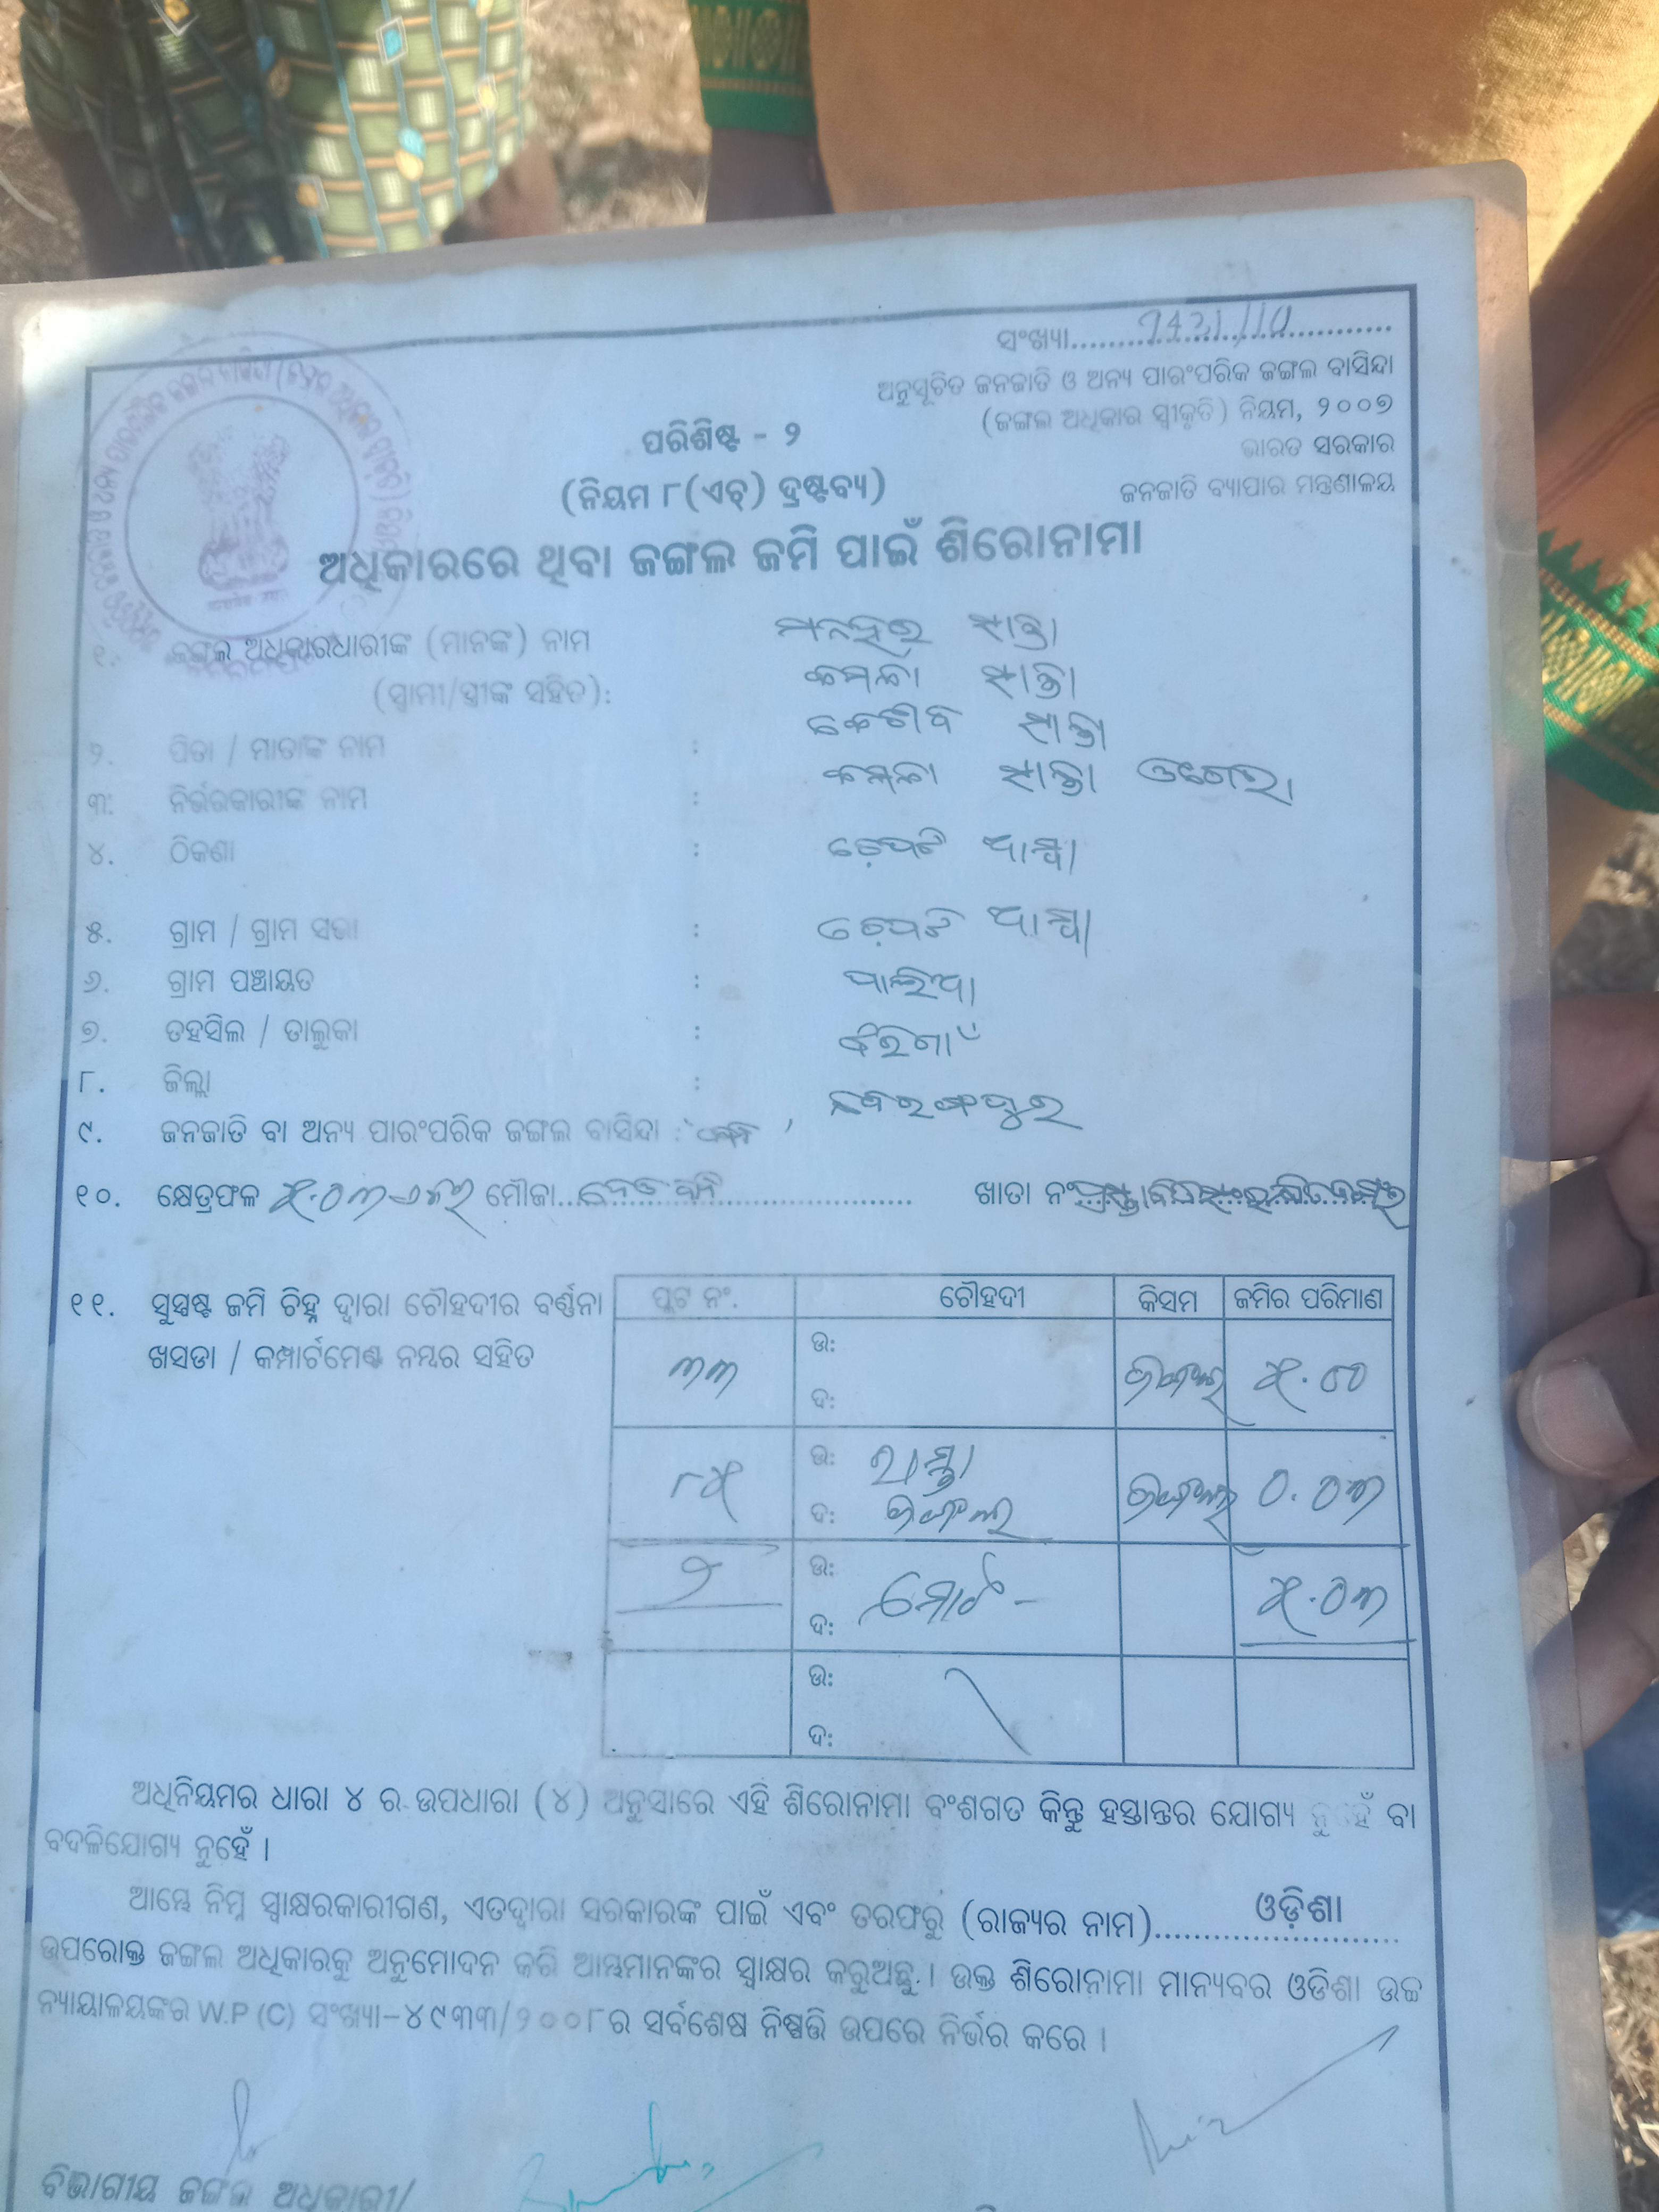 ସଂଖ୍ୟା
ଅନୁସୂଚିତ ଜନଜାତି ଓ ଅନ୍ୟ ପାରଂପରିକ ଜଙ୍ଗଲ ବାସିନ୍ଦା
(ଜଙ୍ଗଲ ଅଧିକାର ସ୍ୱୀକୃତି) ନିୟମ, ୨୦୦୭
ଭାରତ ସରକାର
ଜନଜାତି ବ୍ୟାପାର ମନ୍ତ୍ରଣାଳୟ
ପରିଶିଷ୍ଟ - ୨
(ନିୟମ ୮(ଏଚ୍) ଦ୍ରଷ୍ଟବ୍ୟ)
ଅଧିକାରରେ ଥିବା ଜଙ୍ଗଲ ଜମି ପାଇଁ ଶିରୋନାମା
୧. ଜଙ୍ଗଲ ଅଧିକାରଧାରୀଙ୍କ (ମାନଙ୍କ) ନାମ ମନହର
(ସ୍ୱାମୀ/ସ୍ତ୍ରୀଙ୍କ ସହିତ): କମଳା
୨. ପିତା / ମାତାଙ୍କ ନାମ :
୩. ନିର୍ଭରକାରୀଙ୍କ ନାମ : କମଳା
୪. ଠିକଣା :
୫. ଗ୍ରାମ / ଗ୍ରାମ ସଭା :
୬. ଗ୍ରାମ ପଞ୍ଚାୟତ : ପାଲିଆ
୭. ତହସିଲ / ତାଲୁକା : ଝରିଗାଁ
୮. ଜିଲ୍ଲା : ନବରଙ୍ଗପୁର
୯. ଜନଜାତି ବା ଅନ୍ୟ ପାରଂପରିକ ଜଙ୍ଗଲ ବାସିନ୍ଦା :
୧୦. କ୍ଷେତ୍ରଫଳ ୫.୦୩ ମୌଜା ଖାତା ନଂ
୧୧. ସୁସ୍ପଷ୍ଟ ଜମି ଚିହ୍ନ ଦ୍ୱାରା ଚୌହଦୀର ବର୍ଣ୍ଣନା
ଖସଡା / କମ୍ପାର୍ଟମେଣ୍ଟ ନମ୍ବର ସହିତ
ପ୍ଲଟ ନଂ. ଚୌହଦୀ କିସମ ଜମିର ପରିମାଣ
୩୩ ଉ: ଜଙ୍ଗଲ
ଦ:
୮୫ ଉ: ରାସ୍ତା ଜଙ୍ଗଲ ୦.୦୩
ଦ: ଜଙ୍ଗଲ
୨ ଉ: ମୋଟ - ୫.୦୩
ଦ:
ଉ:
ଦ:
ଅଧିନିୟମର ଧାରା ୪ ର ଉପଧାରା (୪) ଅନୁସାରେ ଏହି ଶିରୋନାମା ବଂଶଗତ କିନ୍ତୁ ହସ୍ତାନ୍ତର ଯୋଗ୍ୟ ନୁହେଁ ବା
ବଦଳିଯୋଗ୍ୟ ନୁହେଁ ।
ଆମ୍ଭେ ନିମ୍ନ ସ୍ୱାକ୍ଷରକାରୀଗଣ, ଏତଦ୍ୱାରା ସରକାରଙ୍କ ପାଇଁ ଏବଂ ତରଫରୁ (ରାଜ୍ୟର ନାମ) ଓଡ଼ିଶା
ଉପରୋକ୍ତ ଜଙ୍ଗଲ ଅଧିକାରକୁ ଅନୁମୋଦନ କରି ଆମ୍ଭମାନଙ୍କର ସ୍ୱାକ୍ଷର କରୁଅଛୁ । ଉକ୍ତ ଶିରୋନାମା ମାନ୍ୟବର ଓଡିଶା ଉଚ୍ଚ
ନ୍ୟାୟାଳୟଙ୍କର W.P (C) ସଂଖ୍ୟା-୪୯୩୩/୨୦୦୮ର ସର୍ବଶେଷ ନିଷ୍ପତ୍ତି ଉପରେ ନିର୍ଭର କରେ ।
ବିଭାଗୀୟ ଜଙ୍ଗଲ ଅଧିକାରୀ/